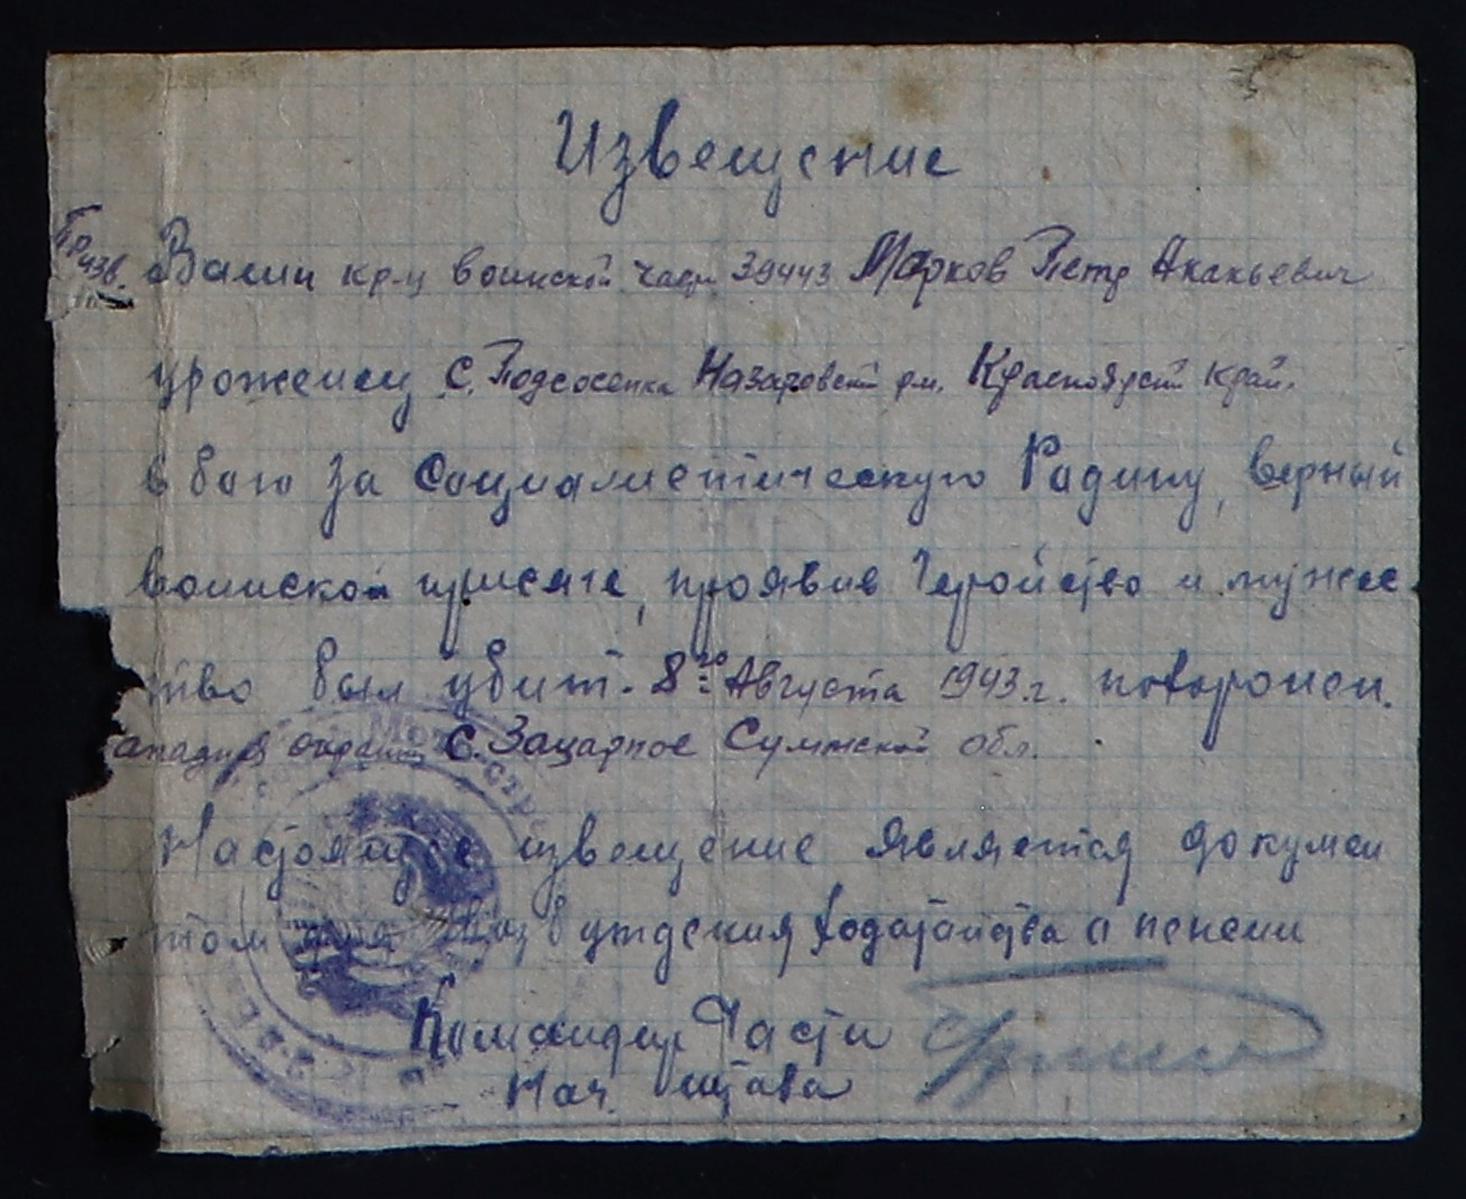 Извещение
Ваш кр-ц воинской части 39443 Марков Петр Акакьевич
уроженец с. Подсосенка Назаровский р-н. Красноярский край.
в бою за Социалистическую Родину, верный
воинской присяге, проявив Геройство и мужес
тво был убит. 8го Августа 1943.г. похоронен.
ападная окраина с. Зацарное Сумской обл.
Настоящее извещение является докумен
том для возбуждения ходатайства о пенсии
Командир Части
Нач. штаба